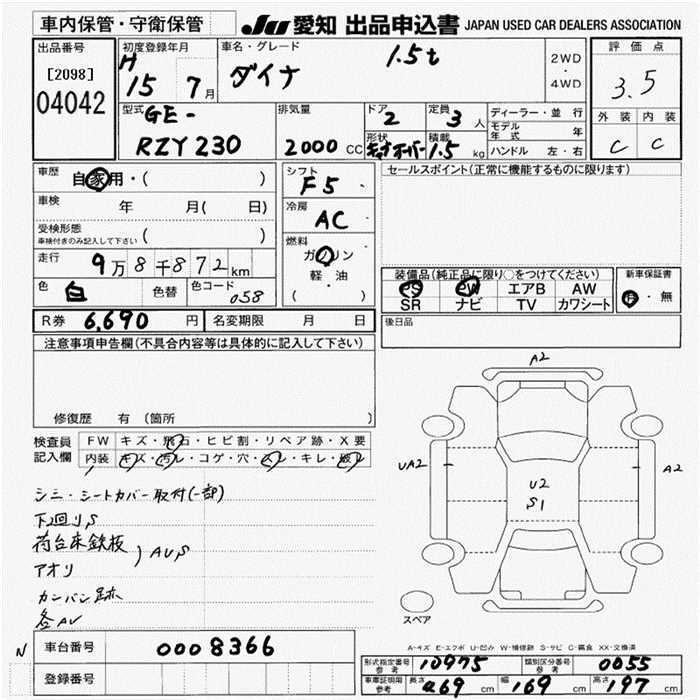 車内保管・守衛保管
JU 愛知 出品申込書 JAPAN USED CAR DEALERS ASSOCIATION
出品番号
[2098]
04042
初度登録年月
H 15 年 7月
車名・グレード
ダイナ 1.5t
2WD
・
4WD
評価点
3.5
外装 内装
C C
型式
GE-
RZY230
排気量
2000 CC
ドア
2
定員
3 人
形状
積載
1.5 kg
ディーラー・並行
モデル年式 年
ハンドル 左・右
車歴
自家用・( )
車検
年 月( 日)
受検形態
車検付きのみ記入して下さい ( )
走行
9万8千872km
色
白 色替
色コード
058
シフト
F5
冷房
AC
燃料
ガソリン
軽・油
( )
セールスポイント(正常に機能するものに限ります)
装備品(純正品に限り○をつけてください)
PS PW エアB AW
SR ナビ TV カワシート
新車保証書
有・無
R券 6,690 円
名変期限 月 日
後日品
注意事項申告欄(不具合内容等は具体的に記入して下さい)
修復歴 有(箇所
検査員
記入欄
FW キズ・飛石・ヒビ割・リペア跡・X要
内装 キズ・汚レ・コゲ・穴・スレ・キレ・破レ
シミ・シートカバー取付(一部)
下回りS
荷台床鉄板
アオリ
) AUS
カンバン跡
各AU
A2
UA2
A2
U2
S1
スペア
A-キズ E-エクボ U-凹み W-補修跡 S-サビ C-腐食 XX-交換済
N
車台番号 0008366
登録番号
形式指定番号
参考
10975
類別区分番号
参考
0055
車庫証明用
参考
長さ 469 cm
幅 169 cm
高さ 197 cm